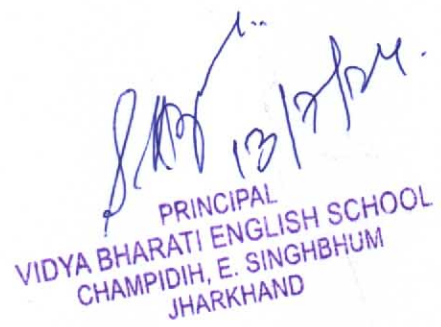 13/7/24.
PRINCIPAL
VIDYA BHARATI ENGLISH SCHOOL
CHAMPIDIH, E. SINGHBHUM
JHARKHAND